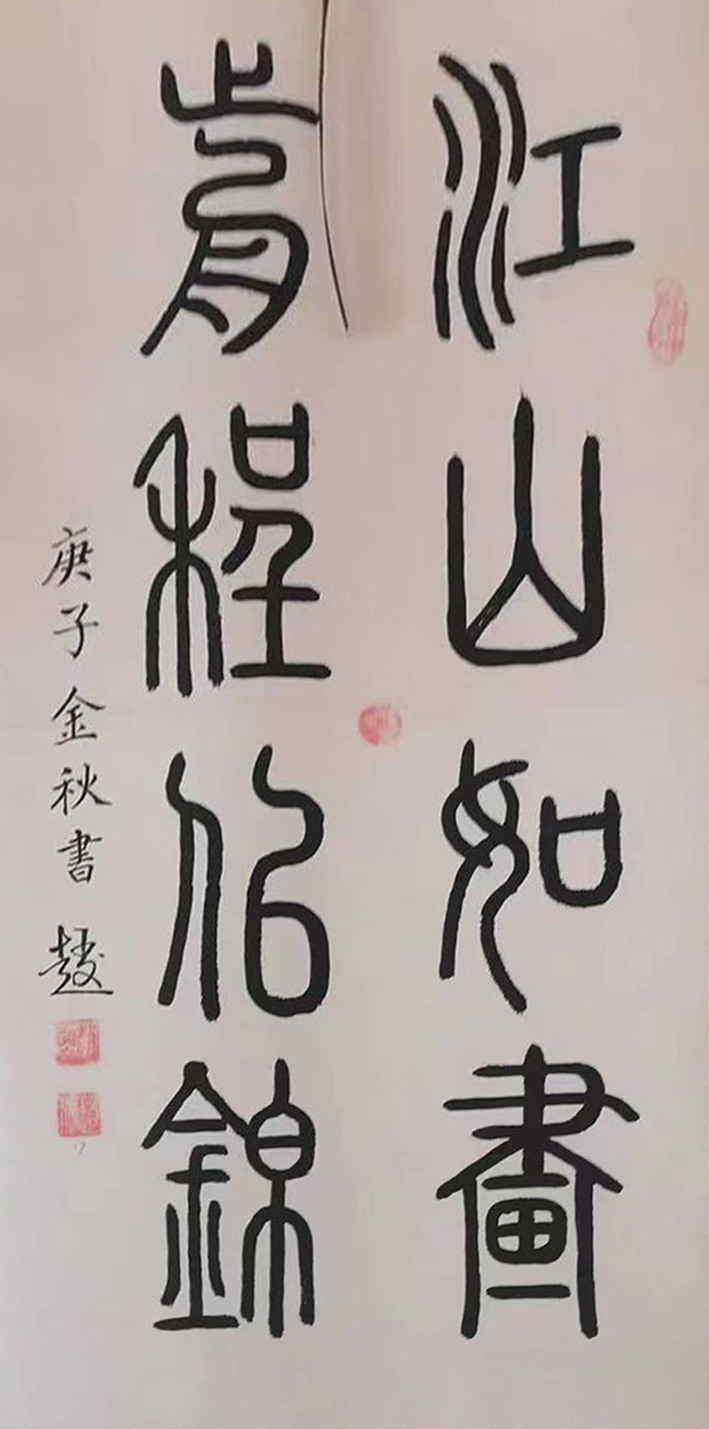 江山如畫
前程似錦
庚子金秋書